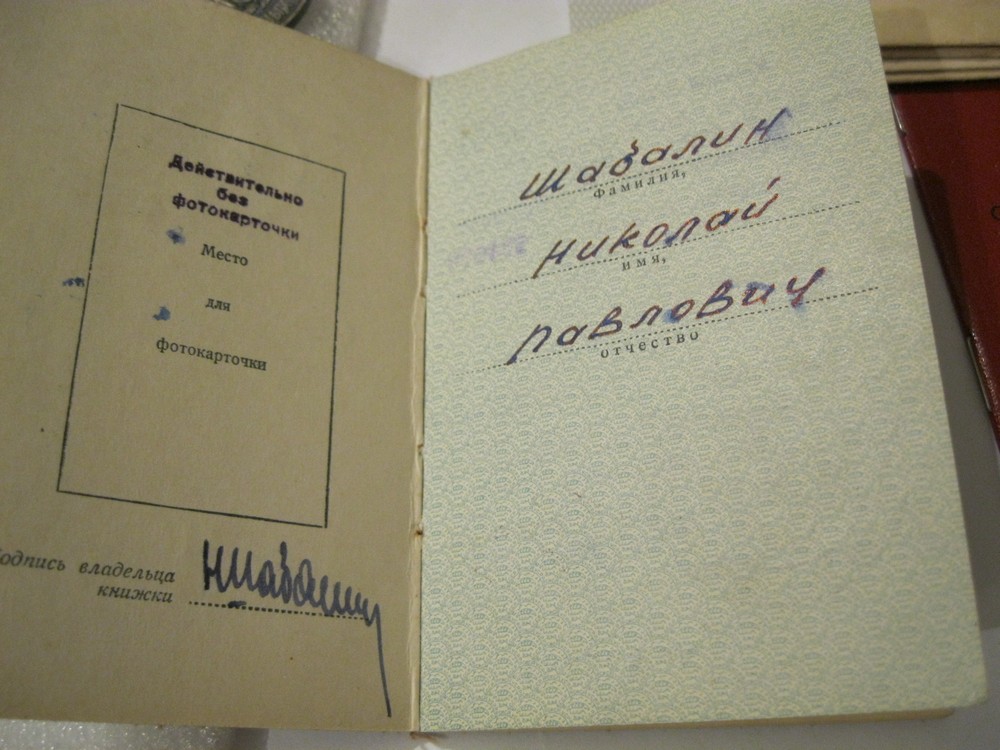 Действительно
без
фотокарточки
Место
для
фотокарточки
Подпись владельца
книжки
НШабалин
Шабалин
фамилия,
Николай
имя,
Павлович
отчество